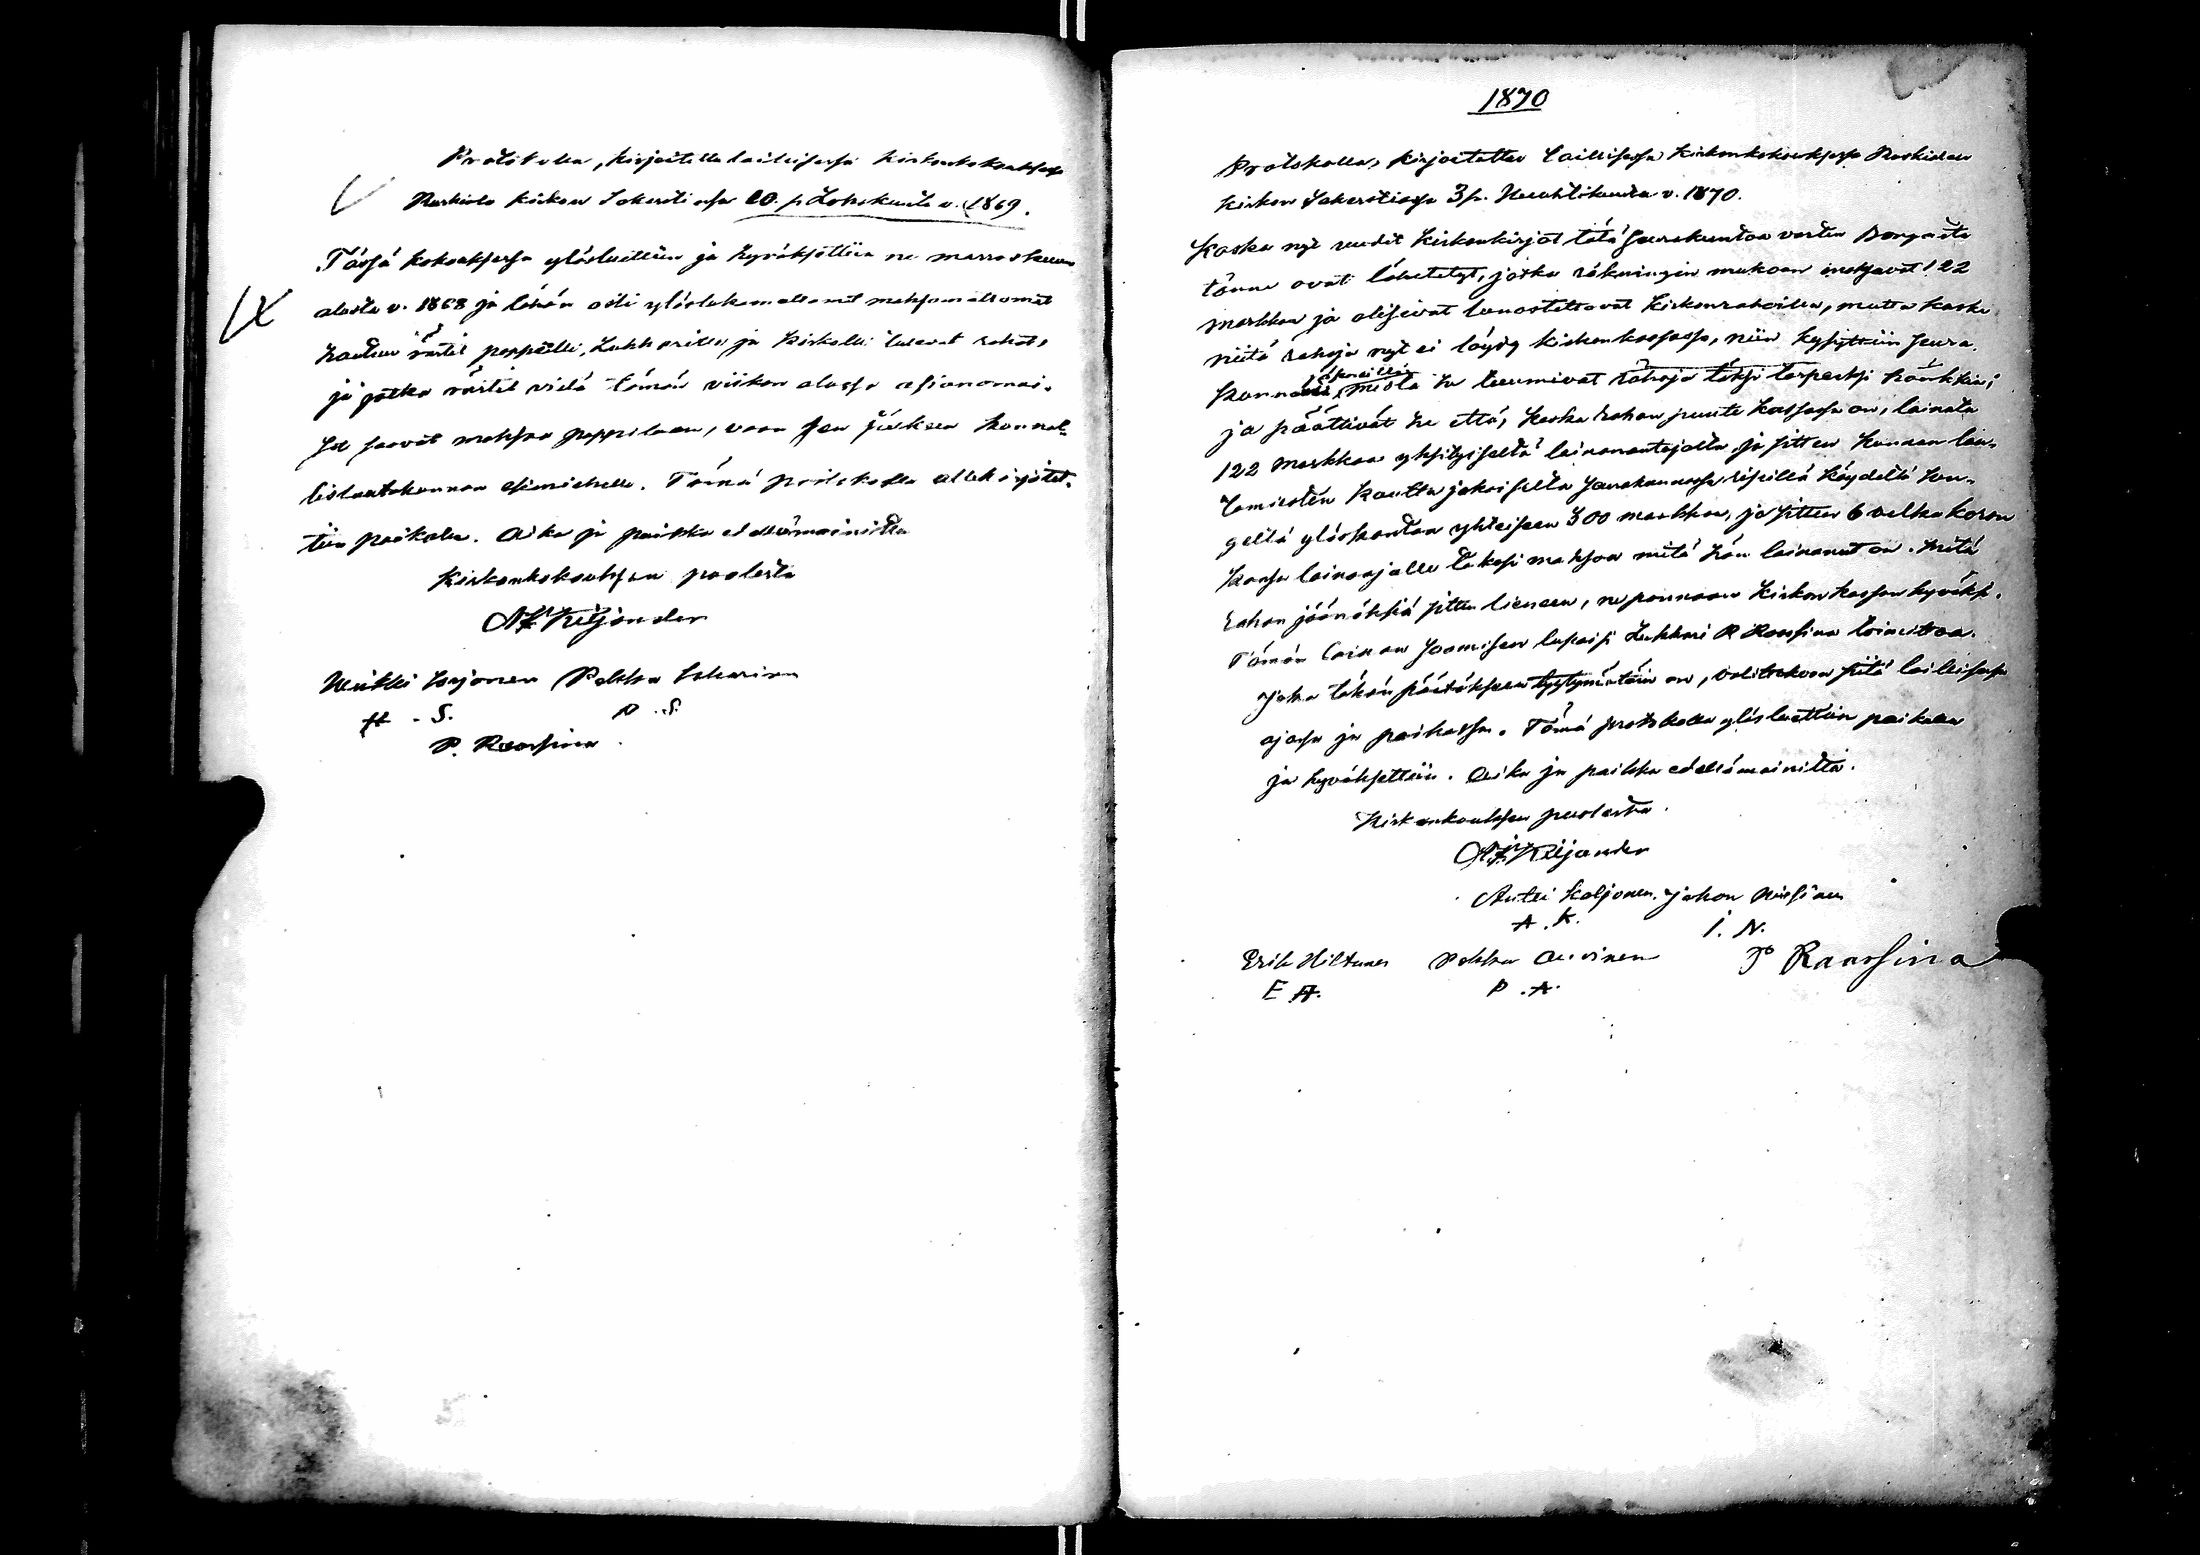 Protokolla, kirjoitettu laillisessa kirkonkokouksessa
kirkon Sakeristiassa 10. p Lokakuuta v. 1869.
Tässä kokouksessa ylösluettiin ja hyväksyttiin ne marraskuun
alusta v. 1868 ja tähän asti ylöstulemattomat maksamattomat
rästit pappilalle, Lukkarille ja Kirkolle tulevat rahat,
ja jotka rästit vielä tämän viikon alussa asianomai-
set saavat maksaa pappilaan, vaan sen jälkeen kunnal-
lislautakunnan esimiehelle. Tämä protokolla allekirjotet-
tiin paikalla. Aika ja paikka edellämainittu
Kirkonkokouksen puolesta
Kiljander
Heikki Pekka
H . S. P . S.
P. Raassina
1870
Protokolla, kirjoitettu laillisessa Kirkonkokouksessa
Kirkon Sakeristiassa 3 p. Huuhtikuuta v. 1870.
Koska nyt uudet Kirkonkirjat tätä seurakuntaa varten Borgasta
tänne ovat lähetetyt, jotka räkningin mukaan maksavat 122
markkaa ja olisivat lunastettavat Kirkonrahoilla, mutta koska
niitä rahoja nyt ei löydy kirkonkassassa, niin kysyttiin Seura-
kunnan mistä he luulisivat rahoja täksi tarpeeksi
ja päättivät he että, koska rahan puute kassassa on, lainata
122 markkaa yksityiseltä lainanantajalta ja sitten Kunnan lau-
tamiesten kautta jokaiselta Seurakunnassa ripillä käyneltä hen-
geltä yhteiseen 300 markkaa, ja sitten 6 velka koron
kanssa lainaajalle takasi maksaa mitä hän lainannut on. Mitä
rahan jäännöksiä sitten lieneen, ne pannaan Kirkon kassan hyväksi.
Tämän lainan saamisen lupaisi Lukkari P Raassina toimittaa.
Joka tähän päätökseen tyytymätöin on, valittakoon siitä laillisessa
ajassa ja paikassa. Tämä protokolla ylösluettiin paikalla
ja hyväksyttiin. Aika ja paikka edellämainittu.
Kirkonkouksen puolesta
Kiljander
Antti Koljonen. Johan Nissinen
A . K. I. N.
Erik Hiltunen Pekka Auvinen P Raassina
E H. P . A.